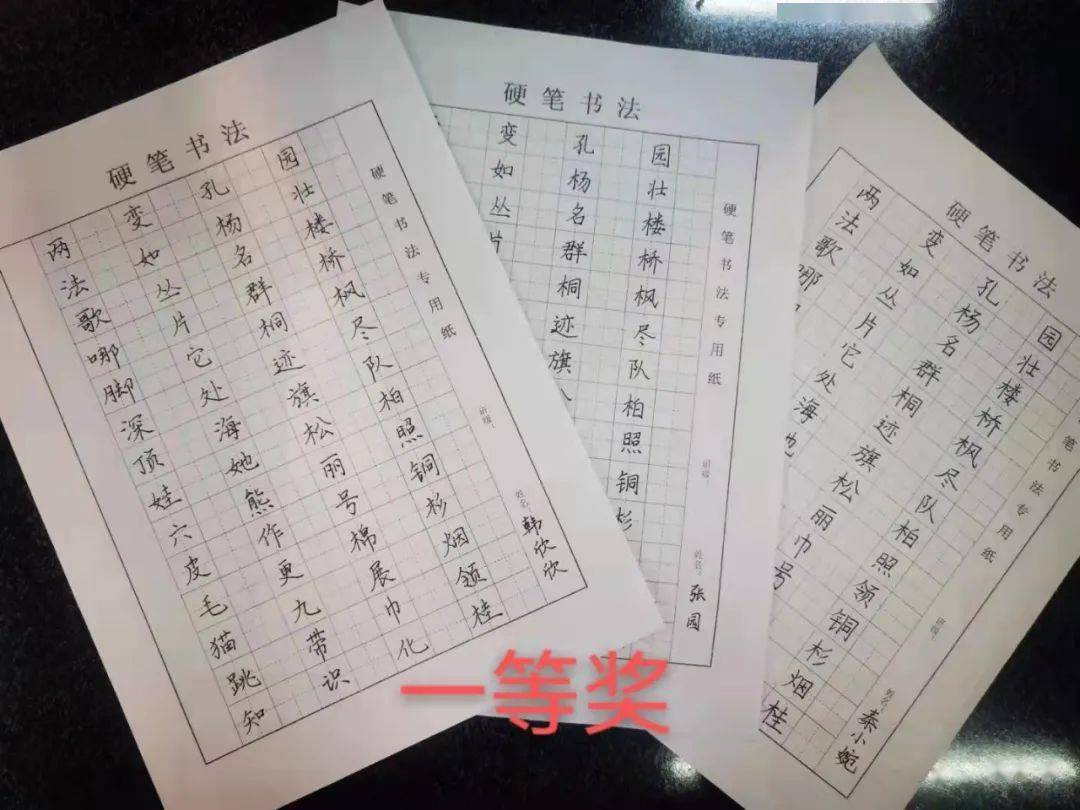 硬笔书法
硬笔书法专用纸
班级:
姓名:韩欣欣
园壮楼桥枫尽队柏照铜杉烟领桂
孔杨名群桐迹旗松丽号棉展巾化
变如丛片它处海她熊作更九带识
两法歌哪脚深顶娃六皮毛猫跳知
硬笔书法
硬笔书法专用纸
班级:
姓名:张园
园壮楼桥枫尽队柏照铜杉
孔杨名群桐迹旗
变如丛片
硬笔书法
笔书法专用纸
班级:
姓名:秦小婉
园壮楼桥枫尽队柏照领铜杉烟桂
孔杨名群桐迹旗松丽巾号
变如丛片它处海她
两法歌哪
一等奖